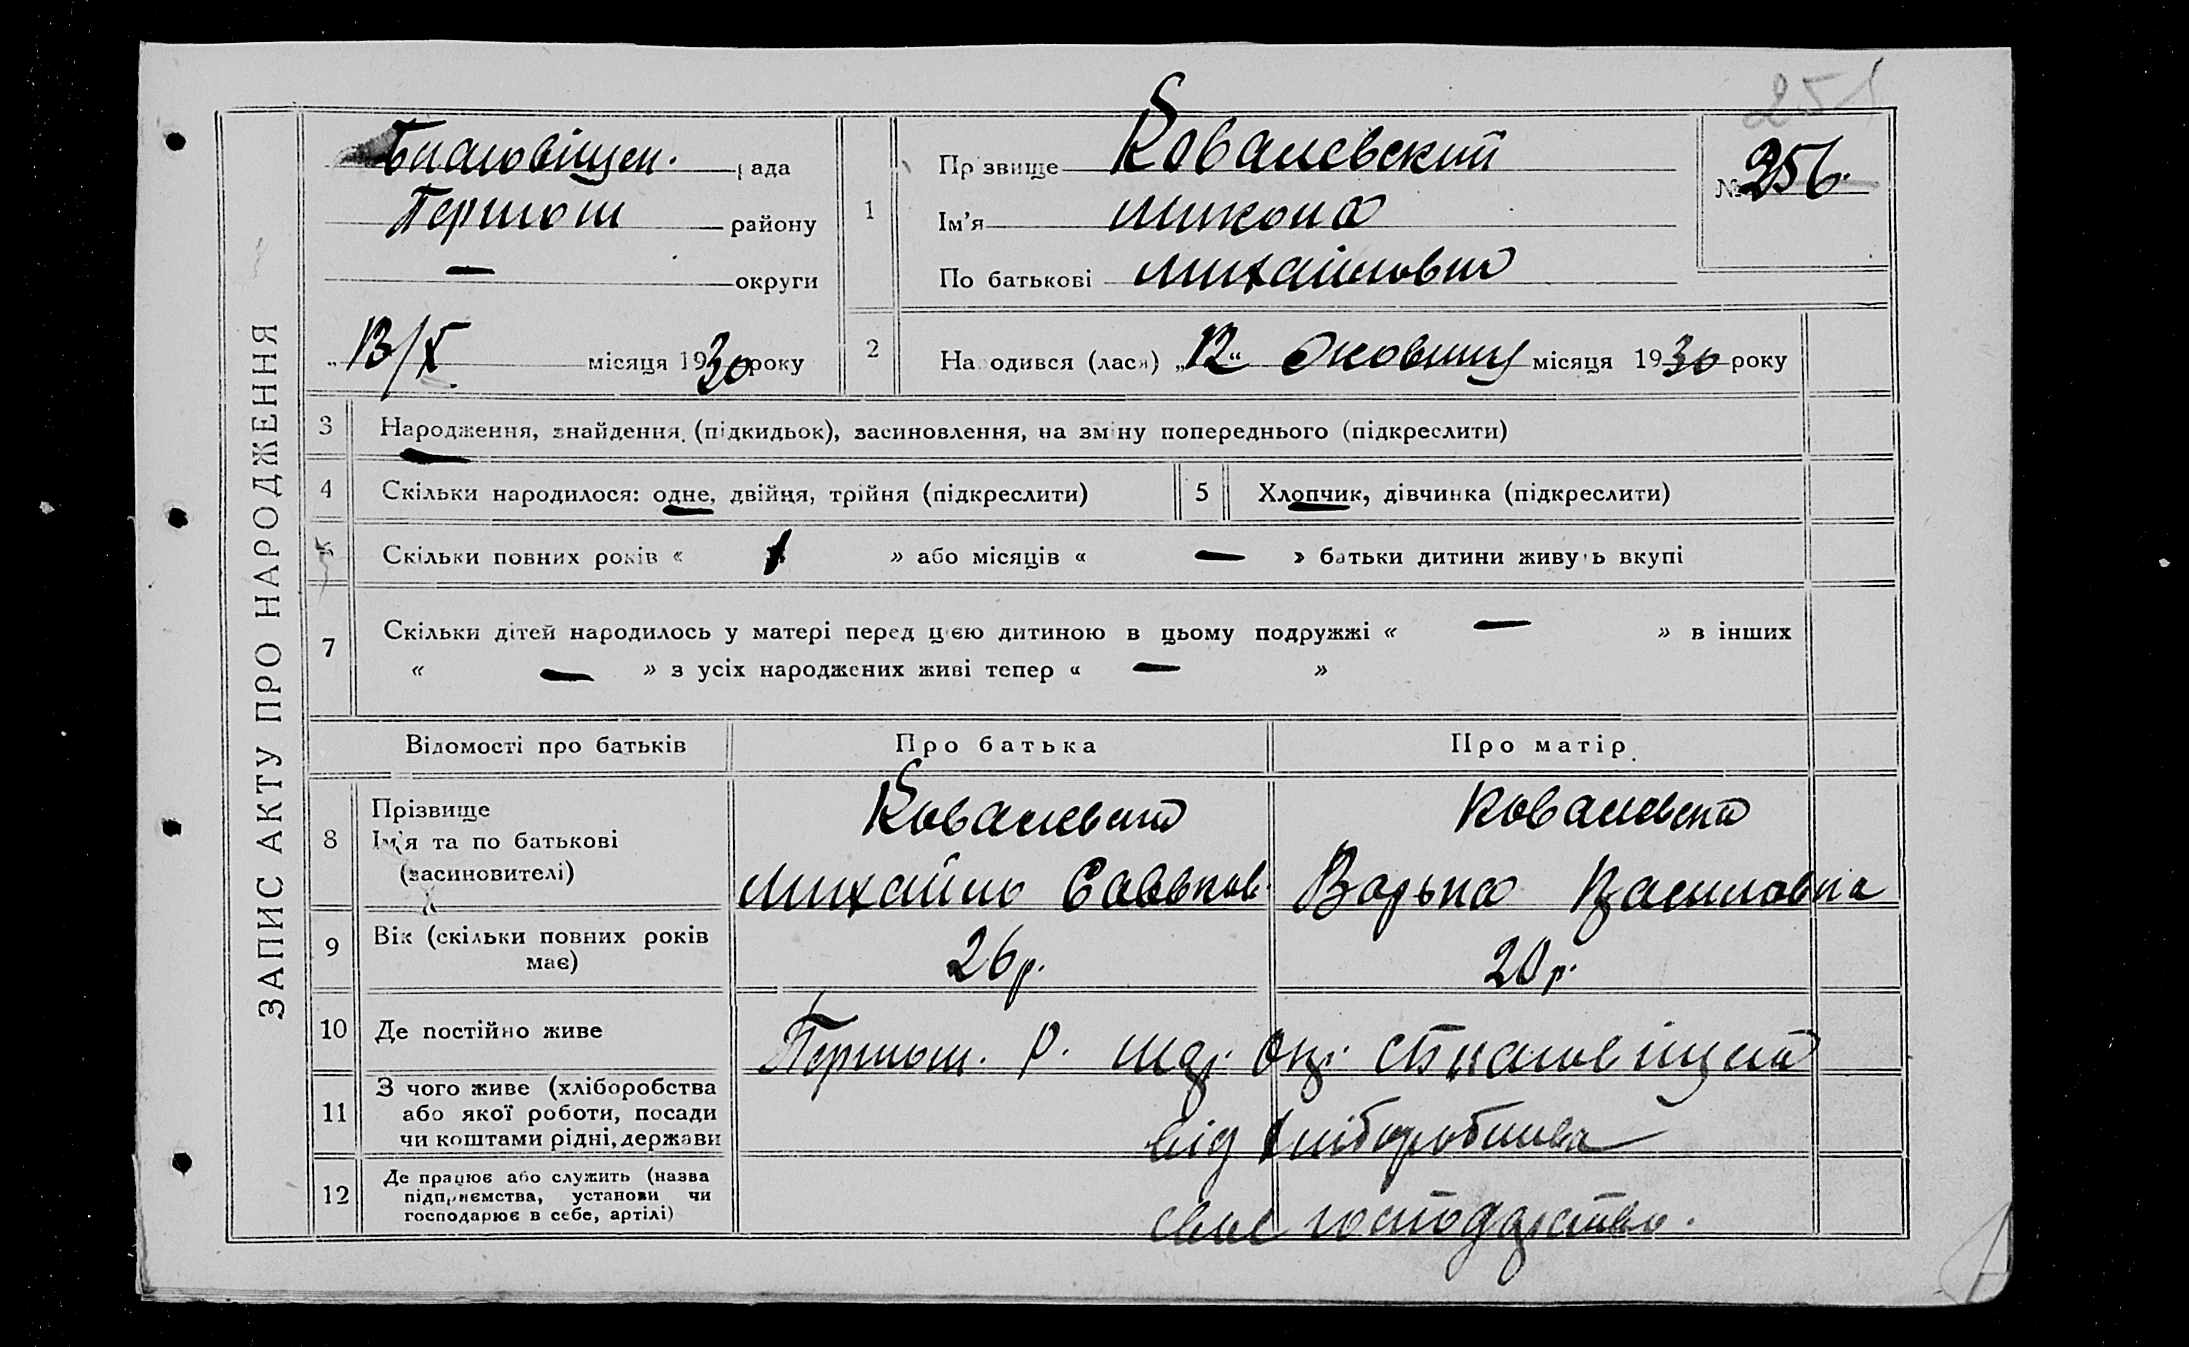 251
ЗАПИС АКТУ ПРО НАРОДЖЕННЯ
рада
Першот району
— округи
„13/X місяця 1930 року
1
Прізвище Ковалевский
Ім'я Микола
По батькові Михайлович
№ 256.
2 Народився (лася) „12“ Жовтня місяця 1930 року
3 Народження, знайдення (підкидьок), засиновлення, на зміну попереднього (підкреслити)
4 Скільки народилося: одне, двійня, трійня (підкреслити)
5 Хлопчик, дівчинка (підкреслити)
Скільки повних років « 1 » або місяців « — » батьки дитини живуть вкупі
7 Скільки дітей народилось у матері перед цією дитиною в цьому подружжі « — » в інших
« — » з усіх народжених живі тепер « — »
Відомості про батьків Про батька Про матір
8 Прізвище
Ім'я та по батькові
(засиновителі)
Ковалевск
Михайло
Ковалевска
Варька Василовна
9 Вік (скільки повних років має)
26 р.
20 р.
10 Де постійно живе
Першот. р.
11 З чого живе (хліборобства
або якої роботи, посади
чи коштами рідні, держави
від хліборобства
12 Де працює або служить (назва
підприємства, установи чи
господарює в себе, артілі)
своє господарство.